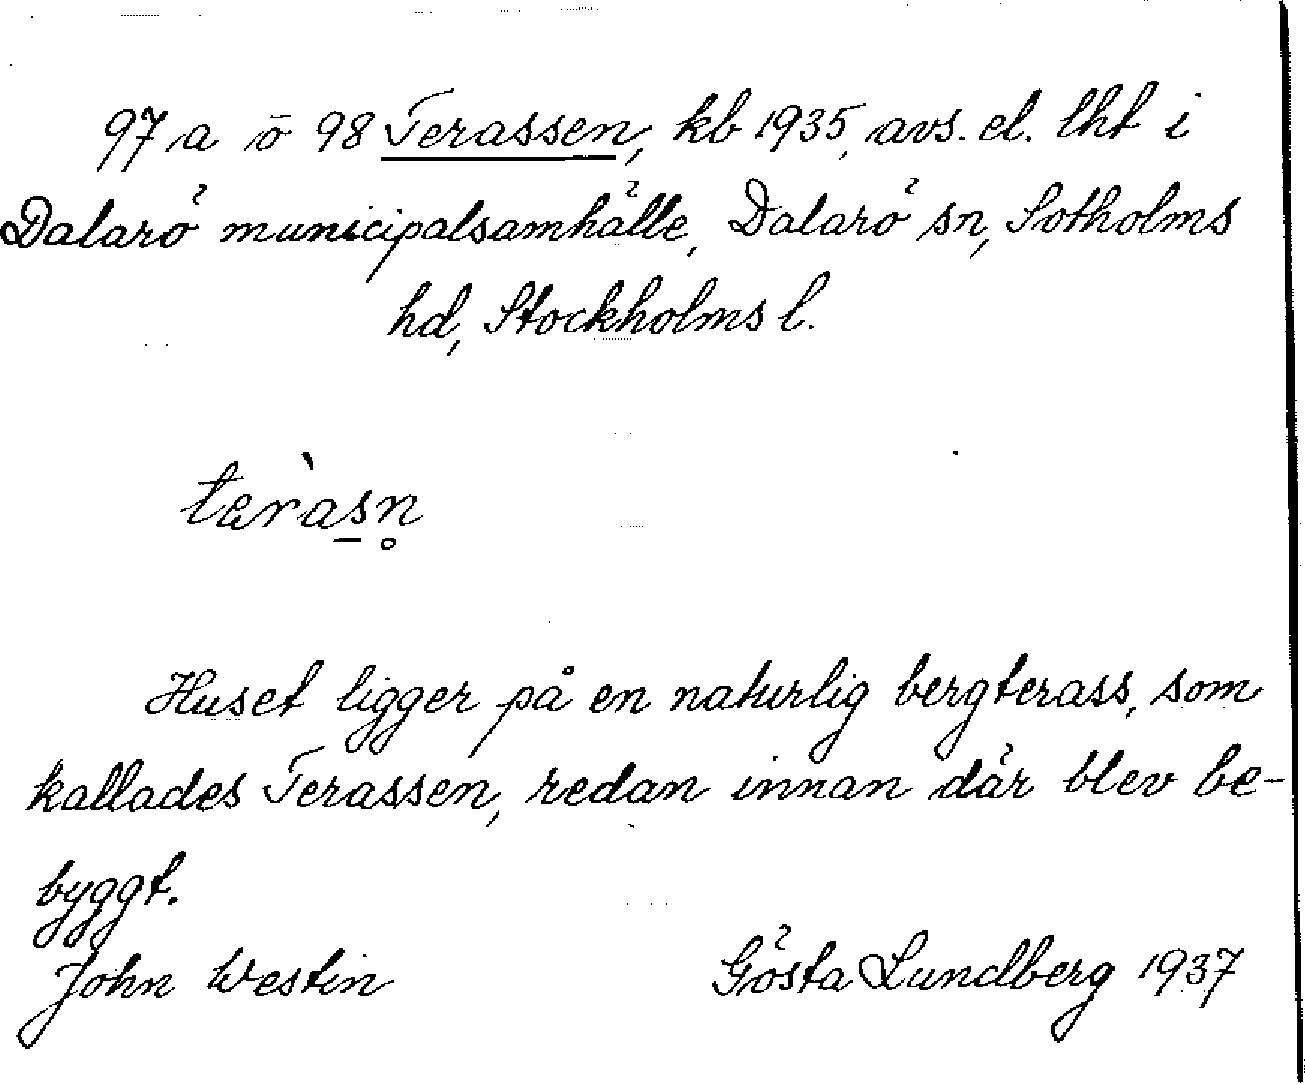 97a o 98 Terassen, kb 1935, avs. el. lht i
Dalarö municipalsamhälle, Dalarö sn, Sotholms
hd, Stockholms l.
tæràs̲n̥
Huset ligger på en naturlig bergterass, som
kallades Terassen, redan innan där blev be-
byggt.
John Westin Gösta Lundberg 1937